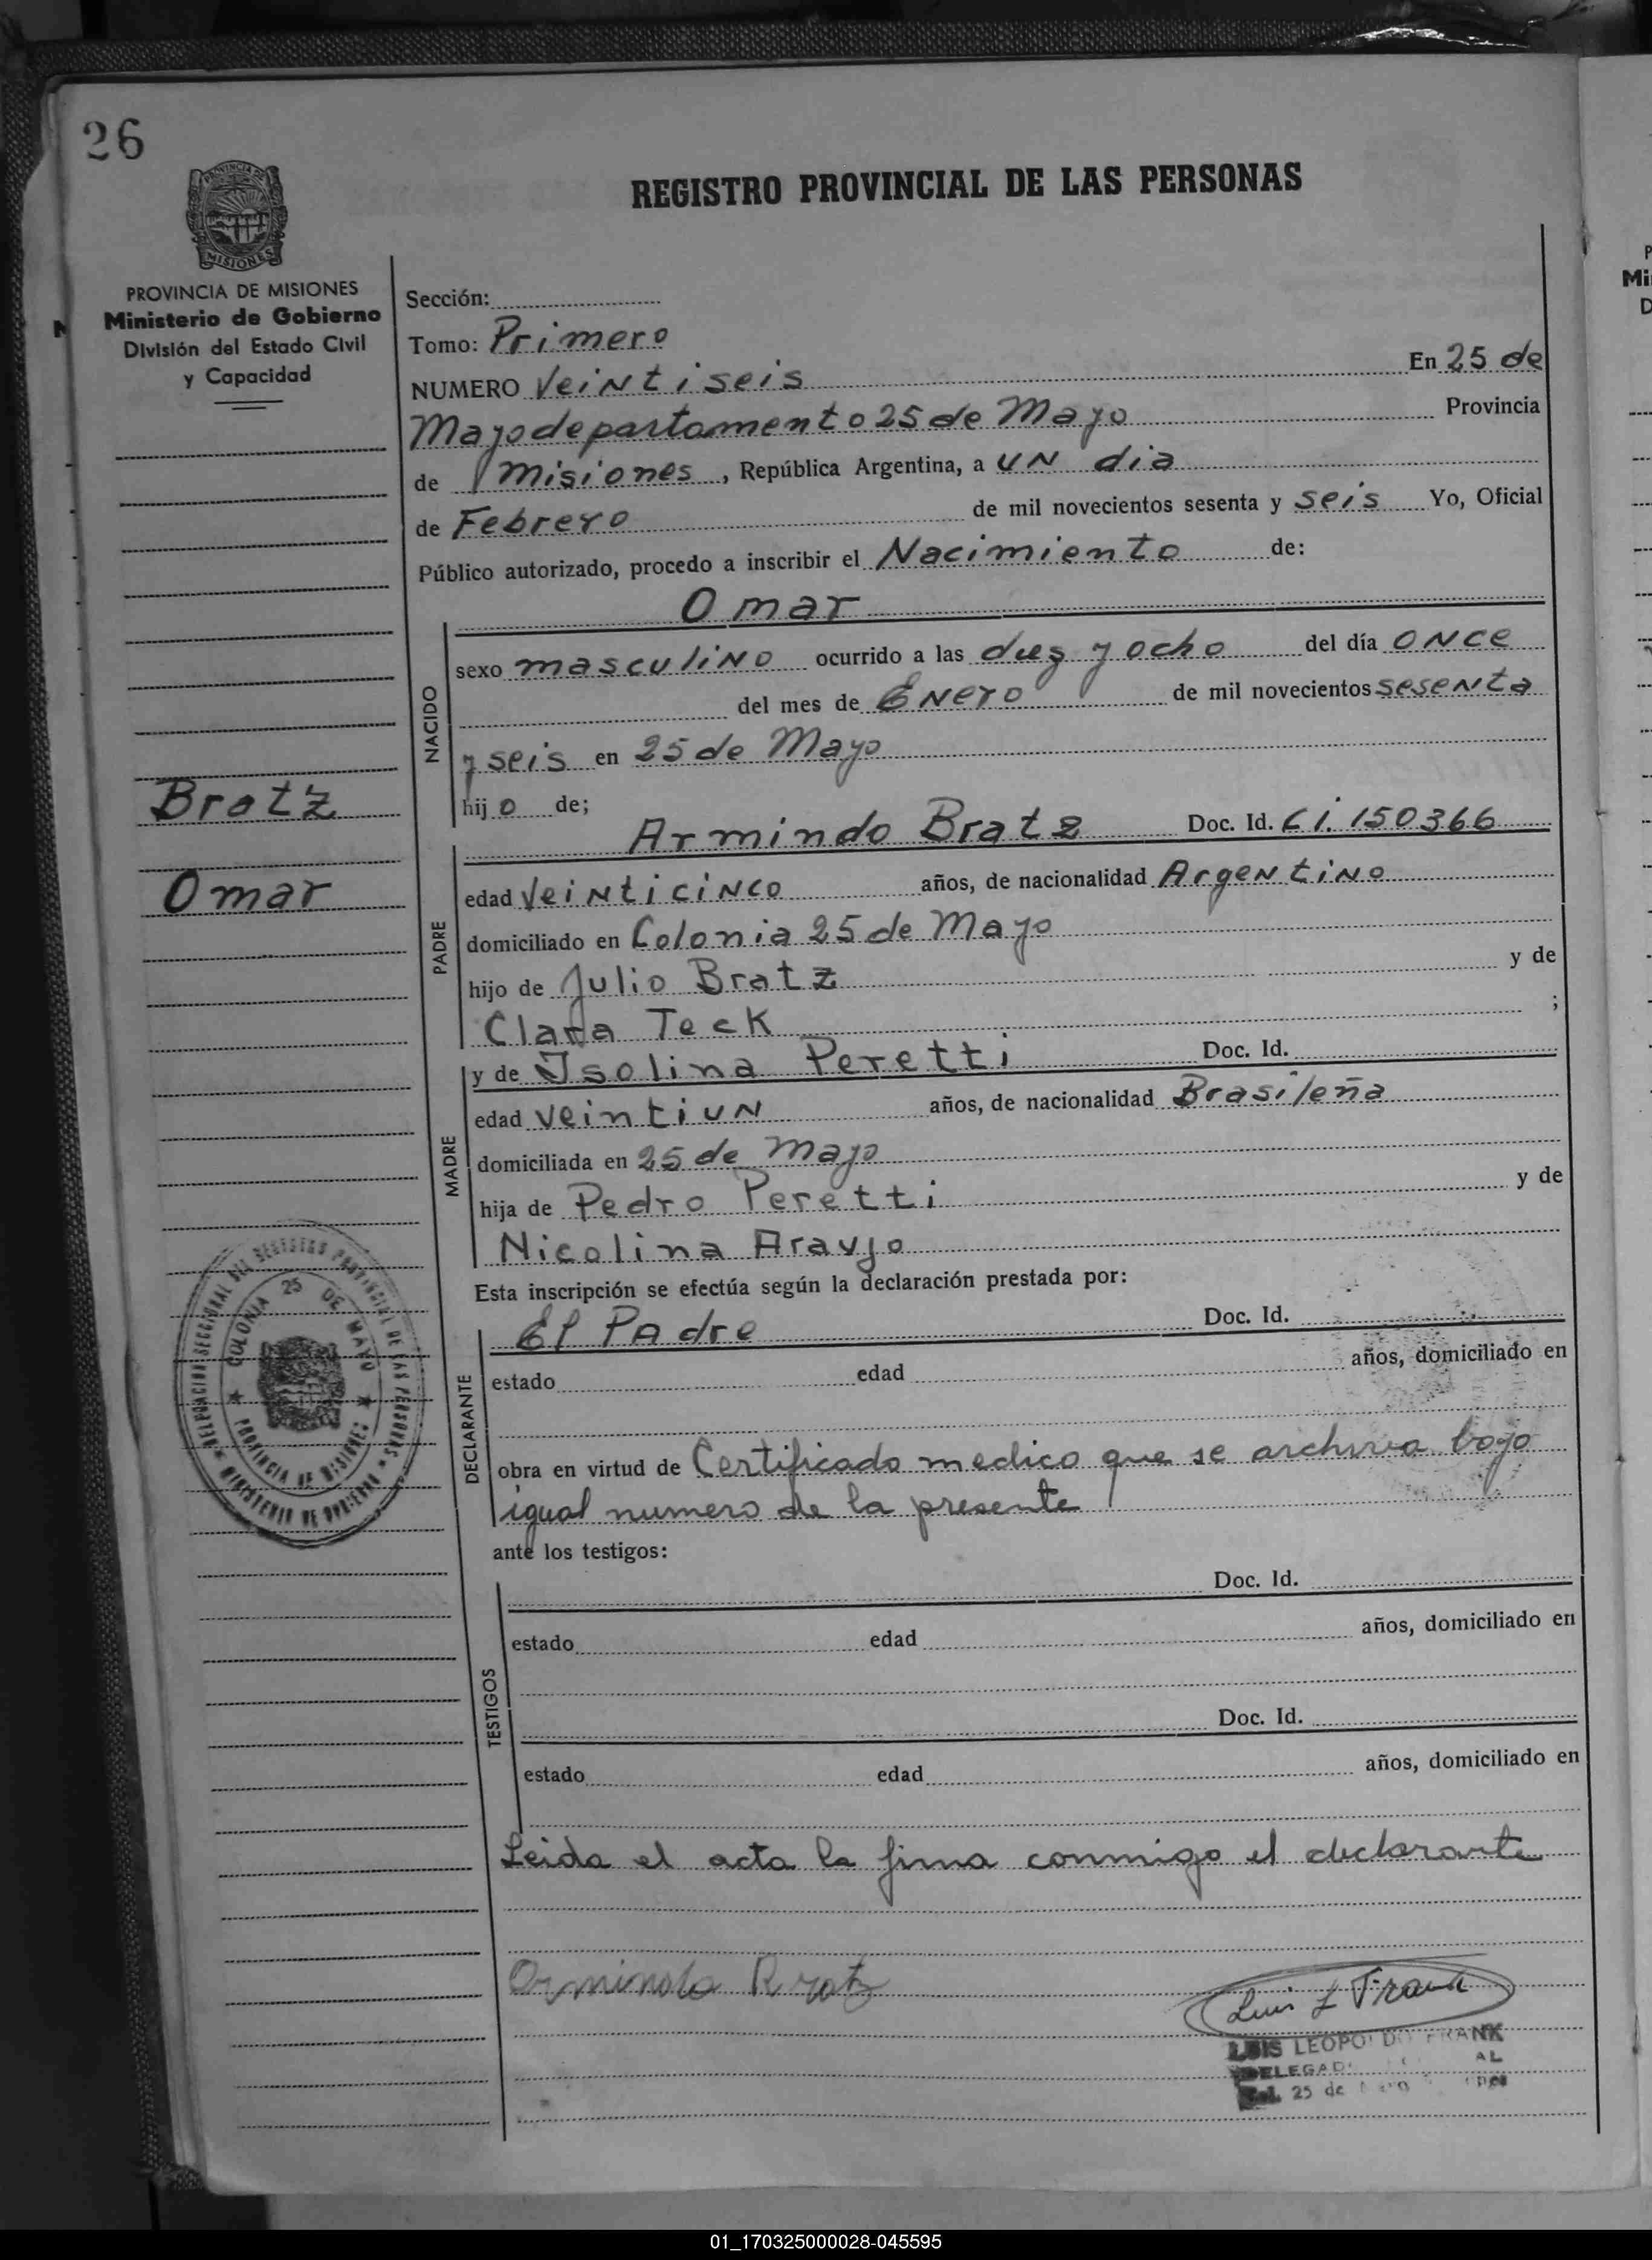 26
REGISTRO PROVINCIAL DE LAS PERSONAS
PROVINCIA DE MISIONES
Ministerio de Gobierno
División del Estado Civil
y Capacidad
Bratz
Omar
Sección:
Tomo: Primero
NUMERO Veintiseis En 25 de
Mayo departamento 25 de Mayo Provincia
de Misiones, República Argentina, a un dia
de Febrero de mil novecientos sesenta y seis Yo, Oficial
Público autorizado, procedo a inscribir el Nacimiento de:
Omar
NACIDO
sexo masculino ocurrido a las diez y ocho del día once
del mes de Enero de mil novecientos sesenta
y seis en 25 de Mayo
hijo de;
PADRE
Armindo Bratz Doc. Id. Ci. 150366
edad Veinticinco años, de nacionalidad Argentino
domiciliado en Colonia 25 de Mayo
hijo de Julio Bratz y de
Clara Teck ;
MADRE
y de Isolina Peretti Doc. Id.
edad veintiun años, de nacionalidad Brasileña
domiciliada en 25 de Mayo
hija de Pedro Peretti y de
Nicolina Araujo
Esta inscripción se efectúa según la declaración prestada por:
DECLARANTE
El Padre Doc. Id.
estado edad años, domiciliado en
obra en virtud de Certificado medico que se archiva bajo
igual numero de la presente
ante los testigos:
TESTIGOS
Doc. Id.
estado edad años, domiciliado en
Doc. Id.
estado edad años, domiciliado en
Leida el acta la firma conmigo el declarante
DELEGACION SECCIONAL DEL REGISTRO PROVINCIAL DE LAS PERSONAS
MINISTERIO DE GOBIERNO
COLONIA 25 DE MAYO
PROVINCIA DE MISIONES
Luis L Frank
LUIS LEOPOLDO FRANK
25 de
01_170325000028-045595